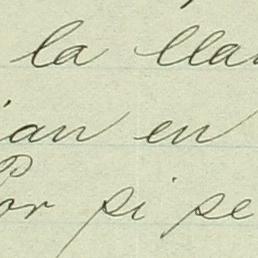 la lla
ian en
Por si se